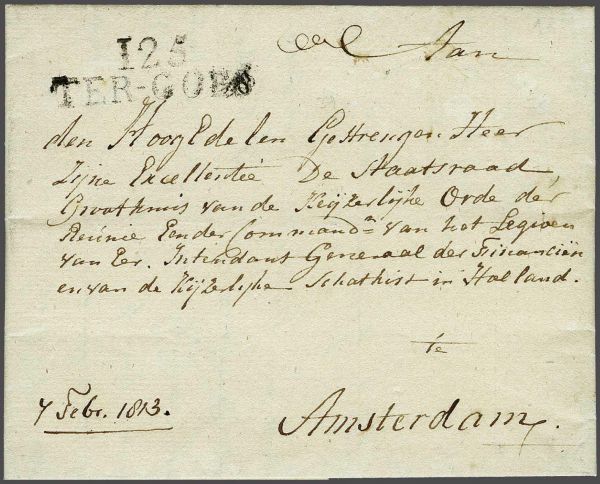 125
TER-GOES
Aan
den HoogEdelen Gestrengen Heer
Zijne Excellentie De Staatsraad,
Grootkruis van de Keijzerlijke Orde der
Reünie Een der Command.n van het Legioen
van Eer. Intendant Generaal der Financiën
en van de Kijzerlijke Schatkist in Holland.
te
7 Febr. 1813.
Amsterdam.